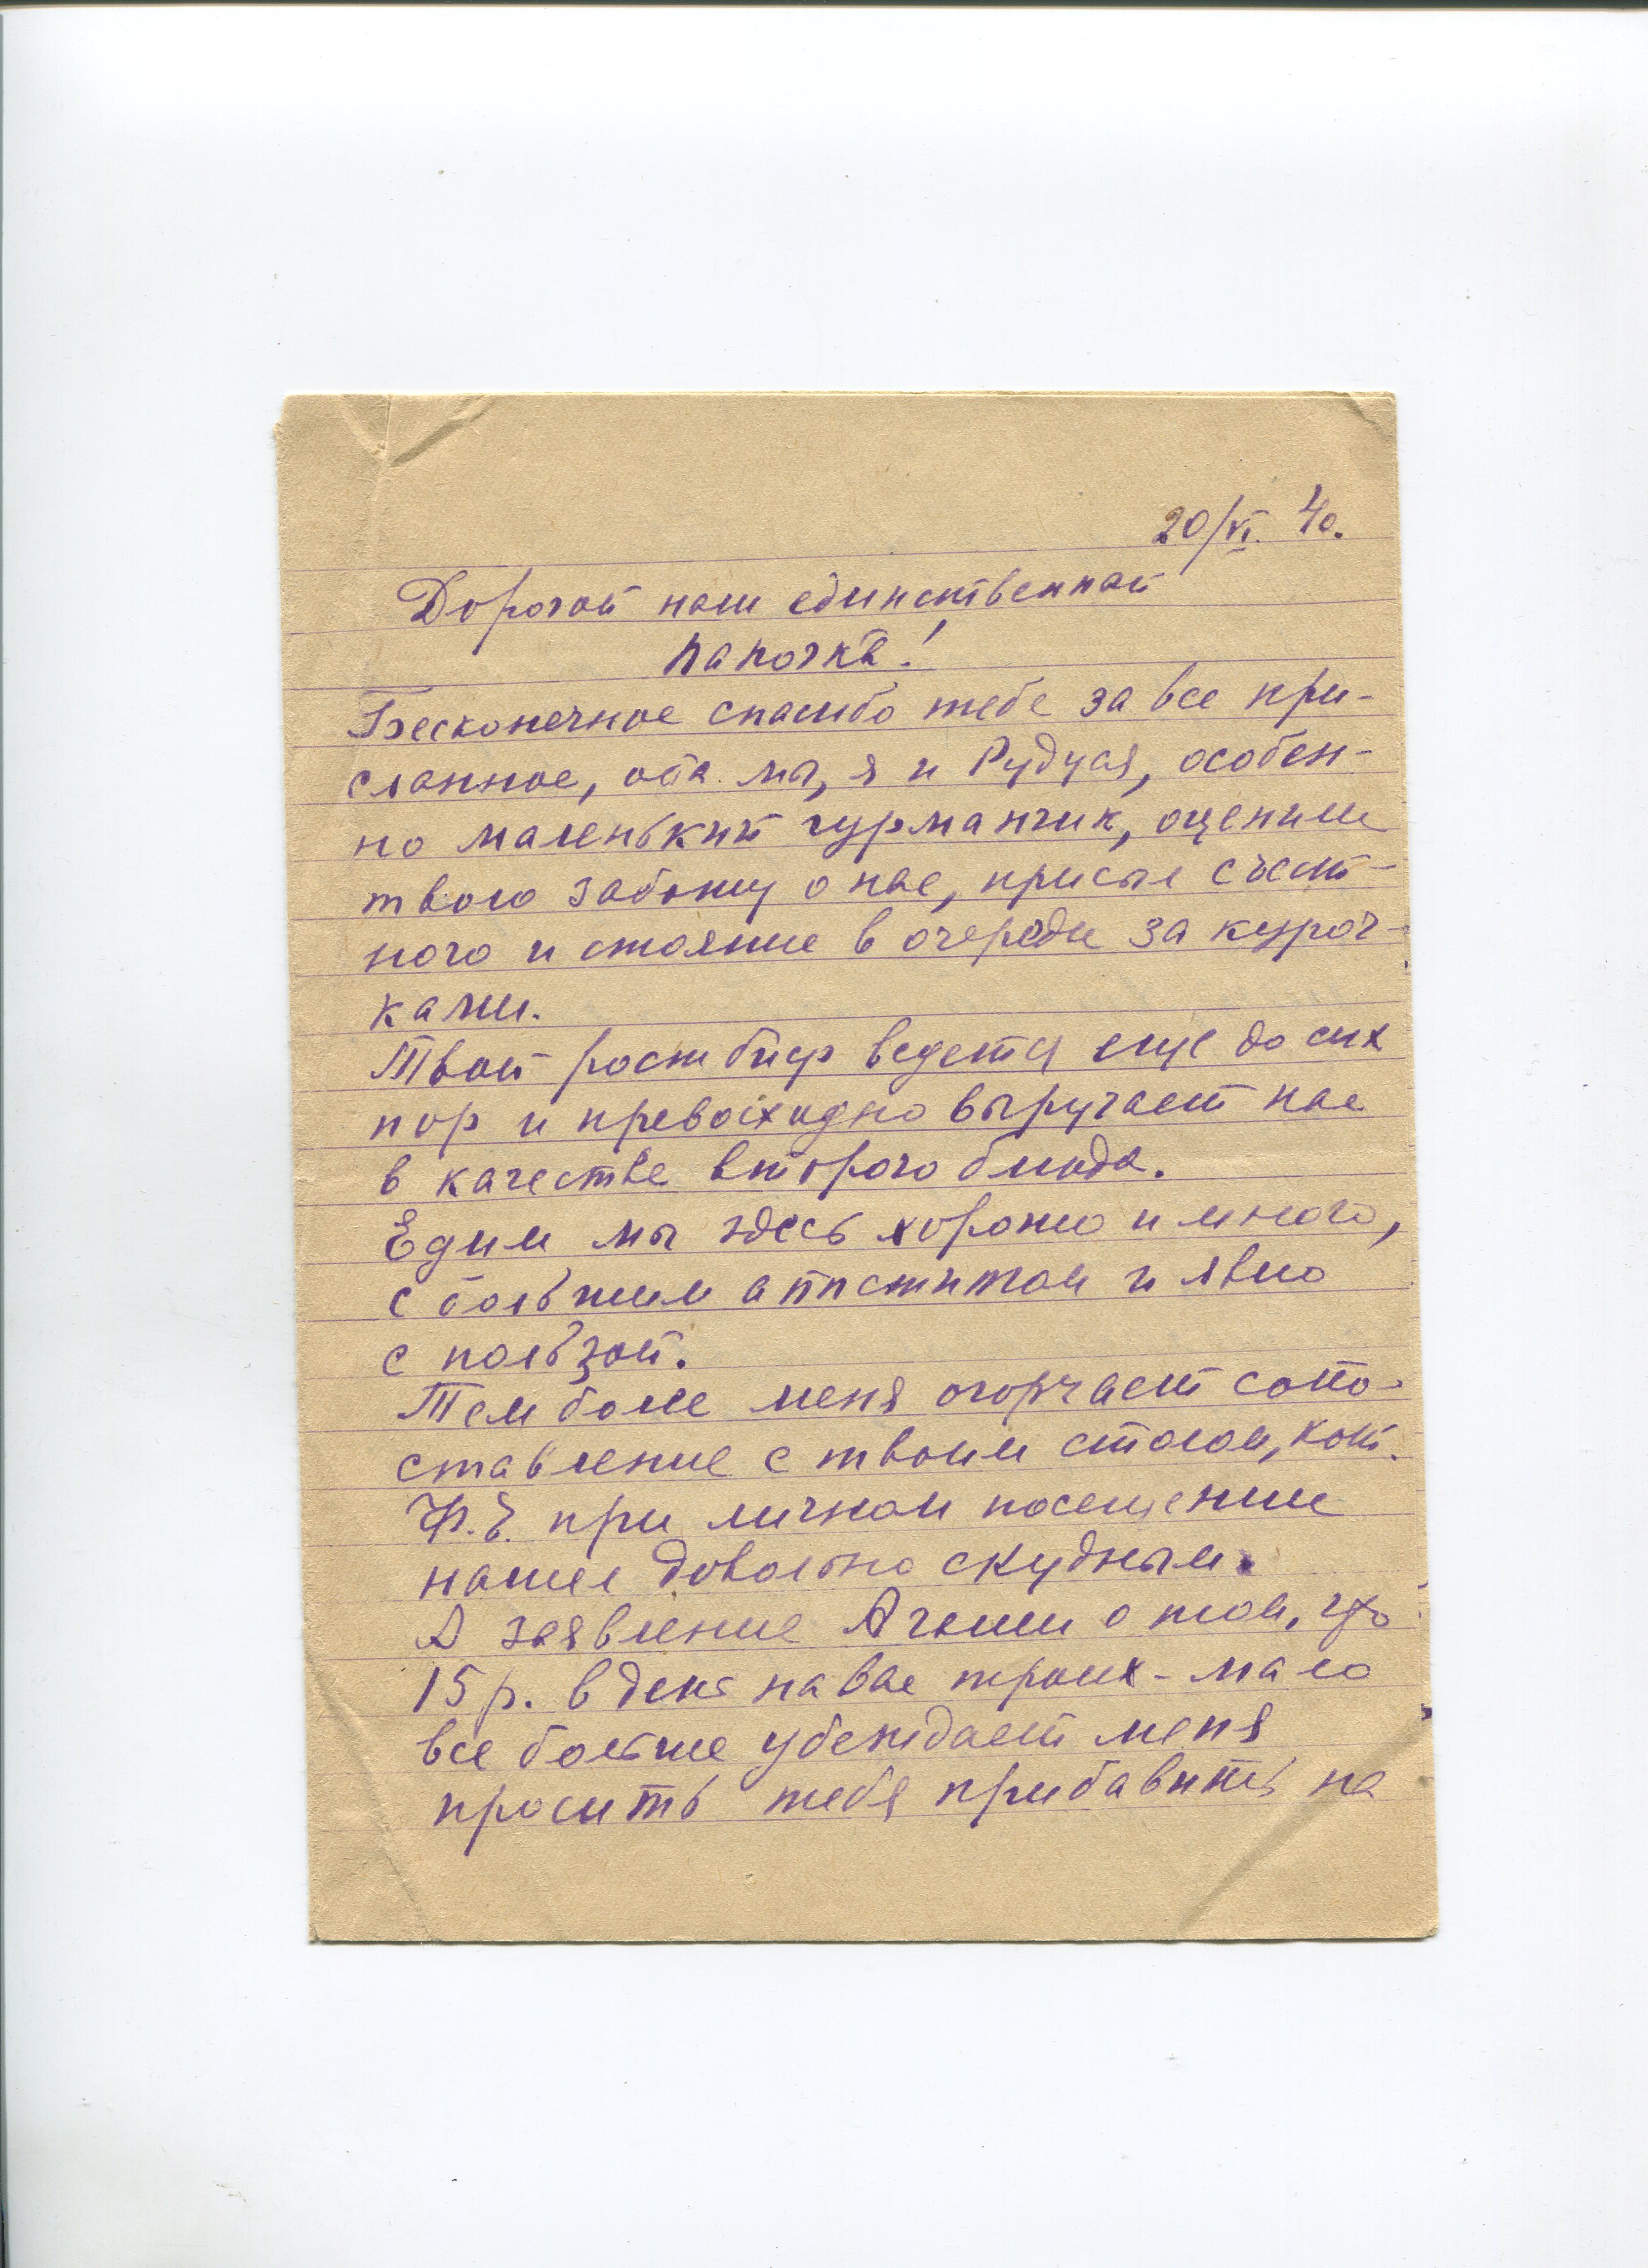 20/VI. 40.
Дорогой наш единственный
папочка!
Бесконечное спасибо тебе за все при-
сланное, оба мы, я и Рудуся, особен-
но маленький гурманчик, оценили
твою заботу о нас, присыл съест-
ного и стояние в очереди за куроч-
ками.
Твой ростбиф ведется еще до сих
пор и превосходно выручает нас
в качестве второго блюда.
Едим мы здесь хорошо и много,
с большим аппетитом и явно
с пользой.
Тем более меня огорчает сопо-
ставление с твоим столом, кот.
Ф.Е. при личном посещении
нашел довольно скудным.
А заявление Агнии о том, что
15 р. в день на вас троих - мало
все больше убеждает меня
просить тебя прибавить на